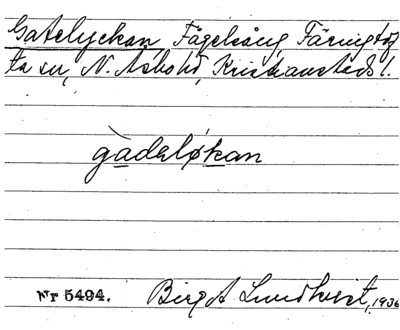 Gatelyckan, Fågelsång, Färingtof-
ta sn, N. Åsbo hd, Kristianstads l.
gàdeløkan
Nr 5494. Birgit Lundkvist, 1936